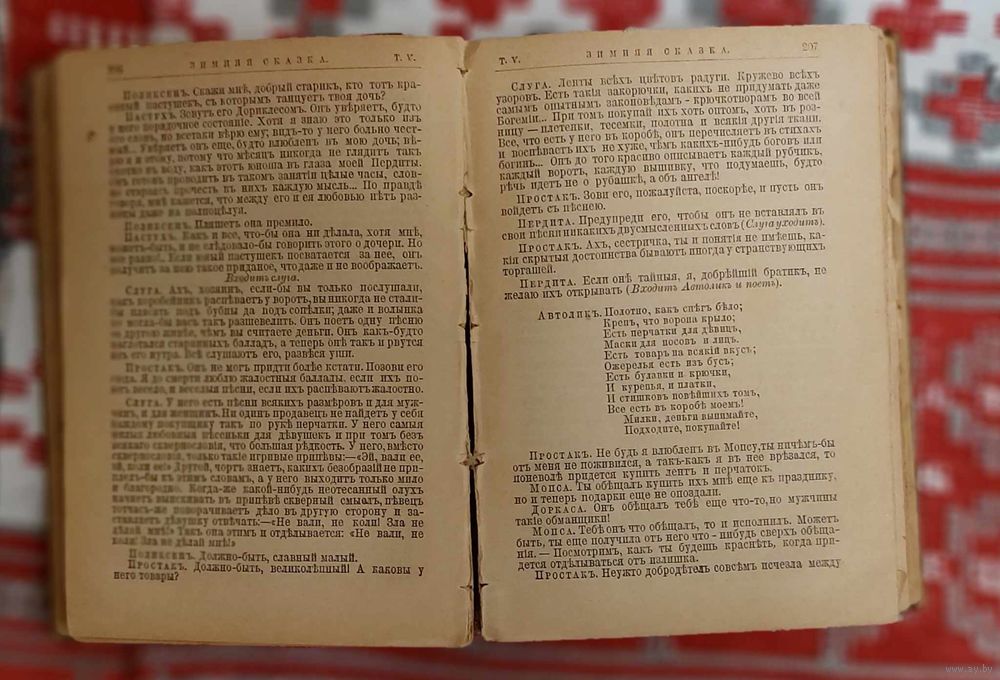 ЗИМНЯЯ СКАЗКА. Т. V.
Поликсенъ. Скажи мнѣ, добрый старикъ, кто тотъ кра-
пастушекъ, съ которымъ танцуетъ твоя дочь?
Пастухъ. Зовутъ его Дориклесомъ. Онъ увѣряетъ, будто
у него порядочное состояніе. Хотя я знаю это только изъ
его словъ, но всетаки вѣрю ему; видъ-то у него больно чест-
Увѣряетъ онъ еще, будто влюбленъ въ мою дочь;
и я этому, потому что мѣсяцъ никогда не глядитъ такъ
въ воду, какъ этотъ юноша въ глаза моей Пердиты.
Онъ готовъ проводить въ такомъ занятіи цѣлые часы, слов-
но стараясь прочесть въ нихъ каждую мысль... По правдѣ
говоря, мнѣ кажется, что между его и ея любовью нѣтъ раз-
ницы даже на полпоцѣлуя.
Поликсенъ. Пляшетъ она премило.
Пастухъ. Какъ и все, что-бы она ни дѣлала, хотя мнѣ,
можетъ-быть, и не слѣдовало-бы говорить этого о дочери. Но
все равно! Если юный пастушекъ посватается за нее, онъ
получитъ за нею такое приданое, что даже и не воображаетъ.
Входитъ слуга.
Слуга. Ахъ, хозяинъ, если-бы вы только послушали,
какъ коробейникъ распѣваетъ у воротъ, вы никогда не стали-
бы плясать подъ бубны да подъ сопѣлки; даже и волынка
не могла-бы васъ такъ разшевелить. Онъ поетъ одну пѣсню
за другою живѣе, чѣмъ вы считаете деньги. Онъ какъ-будто
наглотался старинныхъ балладъ, а теперь онѣ такъ и рвутся
изъ его нутра. Всѣ слушаютъ его, развѣся уши.
Простакъ. Онъ не могъ придти болѣе кстати. Позови его
сюда. Я до смерти люблю жалостныя баллады, если ихъ по-
ютъ весело, и веселыя пѣсни, если ихъ распѣваютъ жалостно.
Слуга. У него есть пѣсни всякихъ размѣровъ и для муж-
чинъ, и для женщинъ. Ни одинъ продавецъ не найдетъ у себя
каждому покупщику такъ по рукѣ перчатки. У него самыя
милыя любовныя пѣсеньки для дѣвушекъ и при томъ безъ
всякаго сквернословія, что большая рѣдкость. У него, вмѣсто
сквернословія, только такіе игривые припѣвы:—«Эй, вали ее,
эй, коли ее!» Другой, чортъ знаетъ, какихъ безобразій не при-
плелъ-бы къ этимъ словамъ, а у него выходитъ только мило
и благородно. Когда-же какой-нибудь неотесанный олухъ
начнетъ выискивать въ припѣвѣ скверный смыслъ, пѣвецъ
тотчасъ-же поворачиваетъ дѣло въ другую сторону и за-
ставляетъ дѣвушку отвѣчать:—«Не вали, не коли! Зла не
дѣлай мнѣ!» Такъ она этимъ и отдѣлывается: «Не вали, не
коли! Зла не дѣлай мнѣ!»
Поликсенъ. Должно-быть, славный малый.
Простакъ. Должно-быть, великолѣпный! А каковы у
него товары?
Т. V. ЗИМНЯЯ СКАЗКА. 207
Слуга. Ленты всѣхъ цвѣтовъ радуги. Кружево всѣхъ
узоровъ. Есть такія закорючки, какихъ не придумать даже
самымъ опытнымъ законовѣдамъ - крючкотворамъ во всей
Богеміи... При томъ покупай ихъ хоть оптомъ, хоть въ роз-
ницу — плетенки, тесемки, полотна и всякія другія ткани.
Все, что есть у него въ коробѣ, онъ перечисляетъ въ стихахъ
и воспѣваетъ ихъ не хуже, чѣмъ какихъ-нибудь боговъ или
богинь... Онъ до того красиво описываетъ каждый рубчикъ,
каждый воротъ, каждую вышивку, что подумаешь, будто
рѣчь идетъ не о рубашкѣ, а объ ангелѣ!
Простакъ. Зови его, пожалуйста, поскорѣе, и пусть онъ
войдетъ съ пѣснею.
Пердита. Предупреди его, чтобы онъ не вставлялъ въ
свои пѣсни никакихъ двусмысленныхъ словъ (Слуга уходитъ).
Простакъ. Ахъ, сестричка, ты и понятія не имѣешь, ка-
кія скрытыя достоинства бываютъ иногда у странствующихъ
торгашей.
Пердита. Если онѣ тайныя, я, добрѣйшій братикъ, не
желаю ихъ открывать (Входитъ Автоликъ и поетъ).
Автоликъ. Полотно, какъ снѣгъ бѣло;
Крепъ, что ворона крыло;
Есть перчатки для дѣвицъ,
Маски для носовъ и лицъ.
Есть товаръ на всякій вкусъ;
Ожерелья есть изъ бусъ;
Есть булавки и крючки,
И куренья, и платки,
И стишковъ новѣйшихъ томъ,
Все есть въ коробѣ моемъ!
Милки, деньги вынимайте,
Подходите, покупайте!
Простакъ. Не будь я влюбленъ въ Мопсу, ты ничѣмъ-бы
отъ меня не поживился, а такъ-какъ я въ нее врѣзался, то
поневолѣ придется купить лентъ и перчатокъ.
Мопса. Ты обѣщалъ купить ихъ мнѣ еще къ празднику,
но и теперь подарки еще не опоздали.
Доркаса. Онъ обѣщалъ тебѣ еще что-то, но мужчины
такіе обманщики!
Мопса. Тебѣ онъ что обѣщалъ, то и исполнилъ. Можетъ
быть, ты еще получила отъ него что - нибудь сверхъ обѣща-
нія. — Посмотримъ, какъ ты будешь краснѣть, когда при-
дется отдѣлываться отъ излишка.
Простакъ. Неужто добродѣтель совсѣмъ исчезла между
www.ay.by